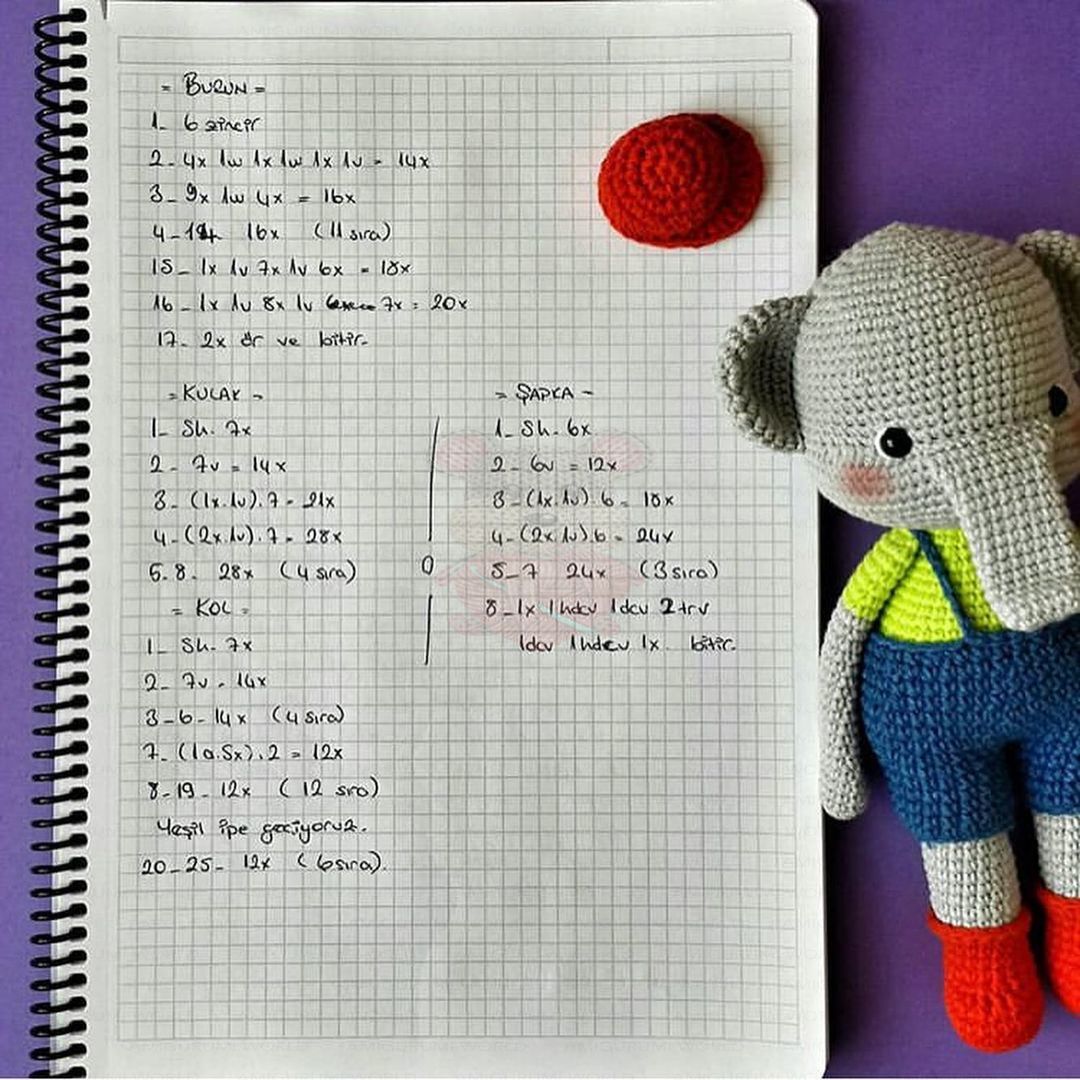 = BURUN =
1- 6 zincir
2- 4x 1w 1x 1w 1x 1v = 14x
3- 9x 1w 4x = 16x
4-14 16x (11 sıra)
15- 1x 1v 7x 1v 6x = 18x
16- 1x 1v 8x 1v 7x = 20x
17- 2x ör ve bitir.
= KULAK =
1- Sh. 7x
2- 7v = 14x
3- (1x.1v).7 = 21x
4- (2x.1v).7 = 28x
5-8- 28x (4 sıra)
= KOL =
1- Sh. 7x
2- 7v = 14x
3-6- 14x (4 sıra)
7- (1a.5x).2 = 12x
8-19- 12x (12 sıra)
Yeşil ipe geçiyoruz.
20-25- 12x (6 sıra).
= ŞAPKA =
1- Sh. 6x
2- 6v = 12x
3- (1x.1v).6 = 18x
4- (2x.1v).6 = 24x
5-7 24x (3 sıra)
8- 1x 1hdcv 1dcv 2trv
1dcv 1hdcv 1x. bitir.